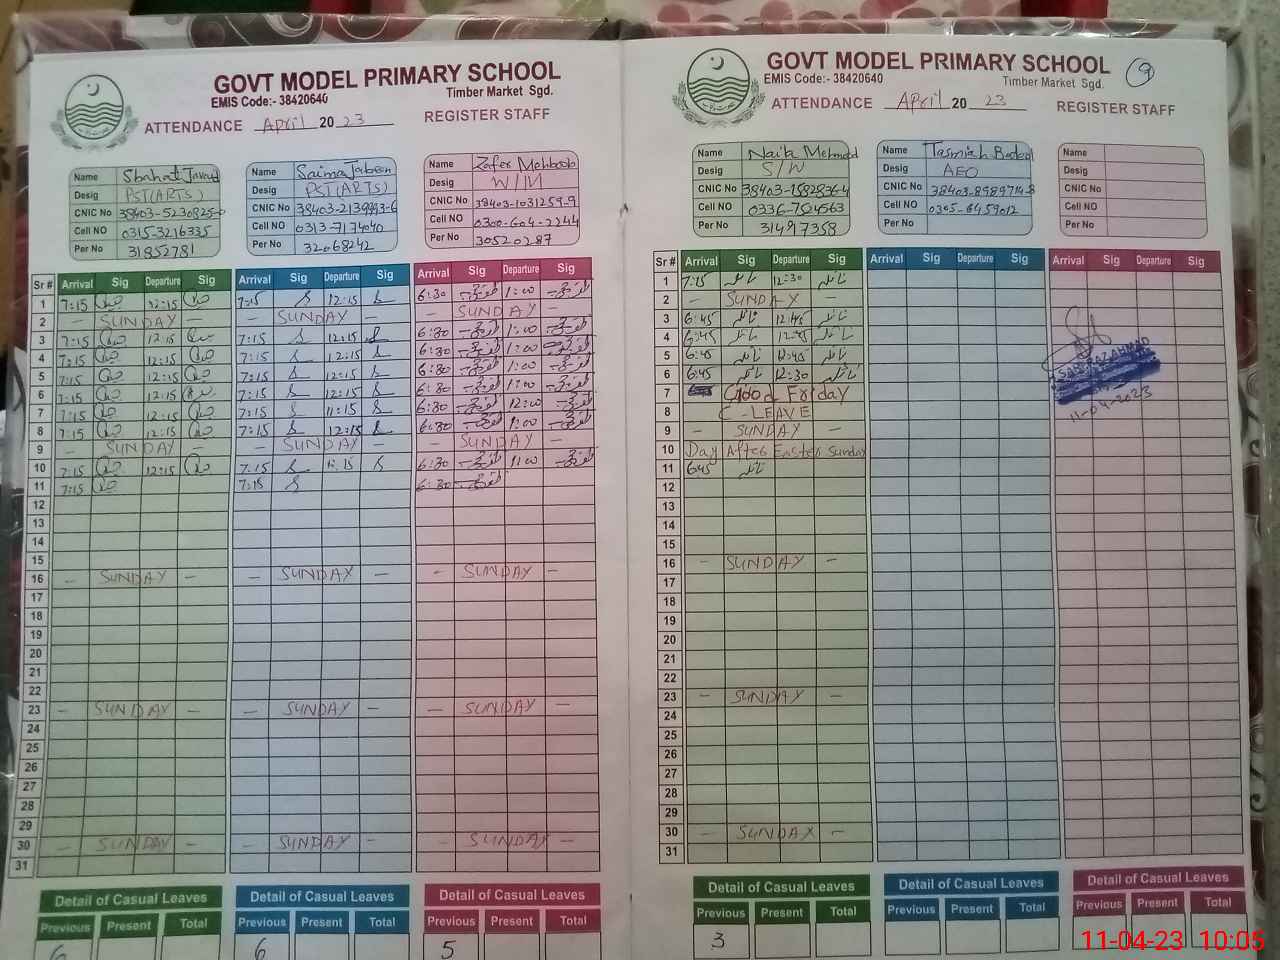 GOVT MODEL PRIMARY SCHOOL
EMIS Code:- 38420640
Timber Market Sgd.
ATTENDANCE April 20 23 REGISTER STAFF
Name Sbahat Javaid
Desig PST(ARTS)
CNIC No 38403-5230825-0
Cell NO 0315-3216335
Per No 31852781
Name Saima Jabeen
Desig PST(ARTS)
CNIC No 38403-2139993-6
Cell NO 0313-7174040
Per No 32068242
Name Zafer Mehboob
Desig W/M
CNIC No 38403-1031259-9
Cell NO 0300-604-2244
Per No 30520287
Sr # Arrival Sig Departure Sig Arrival Sig Departure Sig Arrival Sig Departure Sig
1 7:15 12:15 7:15 12:15 6:30 1:00
2 – SUNDAY – – SUNDAY – – SUNDAY –
3 7:15 12:15 7:15 12:15 6:30 1:00
4 7:15 12:15 7:15 12:15 6:30 1:00
5 7:15 12:15 7:15 12:15 6:30 1:00
6 7:15 12:15 7:15 12:15 6:30 1:00
7 7:15 12:15 7:15 6:30 12:00
8 7:15 12:15 7:15 12:15 6:30 1:00
9 – SUNDAY – – SUNDAY – – SUNDAY –
10 7:15 12:15 7:15 6:30 1:00
11 7:15 7:15 6:30
12
13
14
15
16 – SUNDAY – – SUNDAY – – SUNDAY –
17
18
19
20
21
22
23 – SUNDAY – – SUNDAY – – SUNDAY –
24
25
26
27
28
29
30 – SUNDAY – – SUNDAY – – SUNDAY –
31
Detail of Casual Leaves Detail of Casual Leaves Detail of Casual Leaves
Previous Present Total Previous Present Total Previous Present Total
6 6 5
GOVT MODEL PRIMARY SCHOOL 9
EMIS Code:- 38420640
Timber Market Sgd.
ATTENDANCE April 20 23 REGISTER STAFF
Name Naila Mehmood
Desig S/W
CNIC No 38403-1582836-4
Cell NO 0336-7524563
Per No 31497358
Name Tasmiah
Desig AEO
CNIC No 38403-8989714-8
Cell NO 0305-6459012
Per No
Name
Desig
CNIC No
Cell NO
Per No
Sr # Arrival Sig Departure Sig Arrival Sig Departure Sig Arrival Sig Departure Sig
1 7:15 نائلہ 12:30 نائلہ
2 – SUNDAY –
3 6:45 نائلہ 12:45 نائلہ
4 6:45 نائلہ 12:45 نائلہ
5 6:45 نائلہ 12:45 نائلہ
6 6:45 نائلہ 12:30 نائلہ
7 Good Friday
8 C-LEAVE
9 – SUNDAY –
10 Day After Easter Sunday
11 6:45 نائلہ
12
13
14
15
16 – SUNDAY –
17
18
19
20
21
22
23 – SUNDAY –
24
25
26
27
28
29
30 – SUNDAY –
31
11-04-2023
Detail of Casual Leaves Detail of Casual Leaves Detail of Casual Leaves
Previous Present Total Previous Present Total Previous Present Total
3
11-04-23 10:05